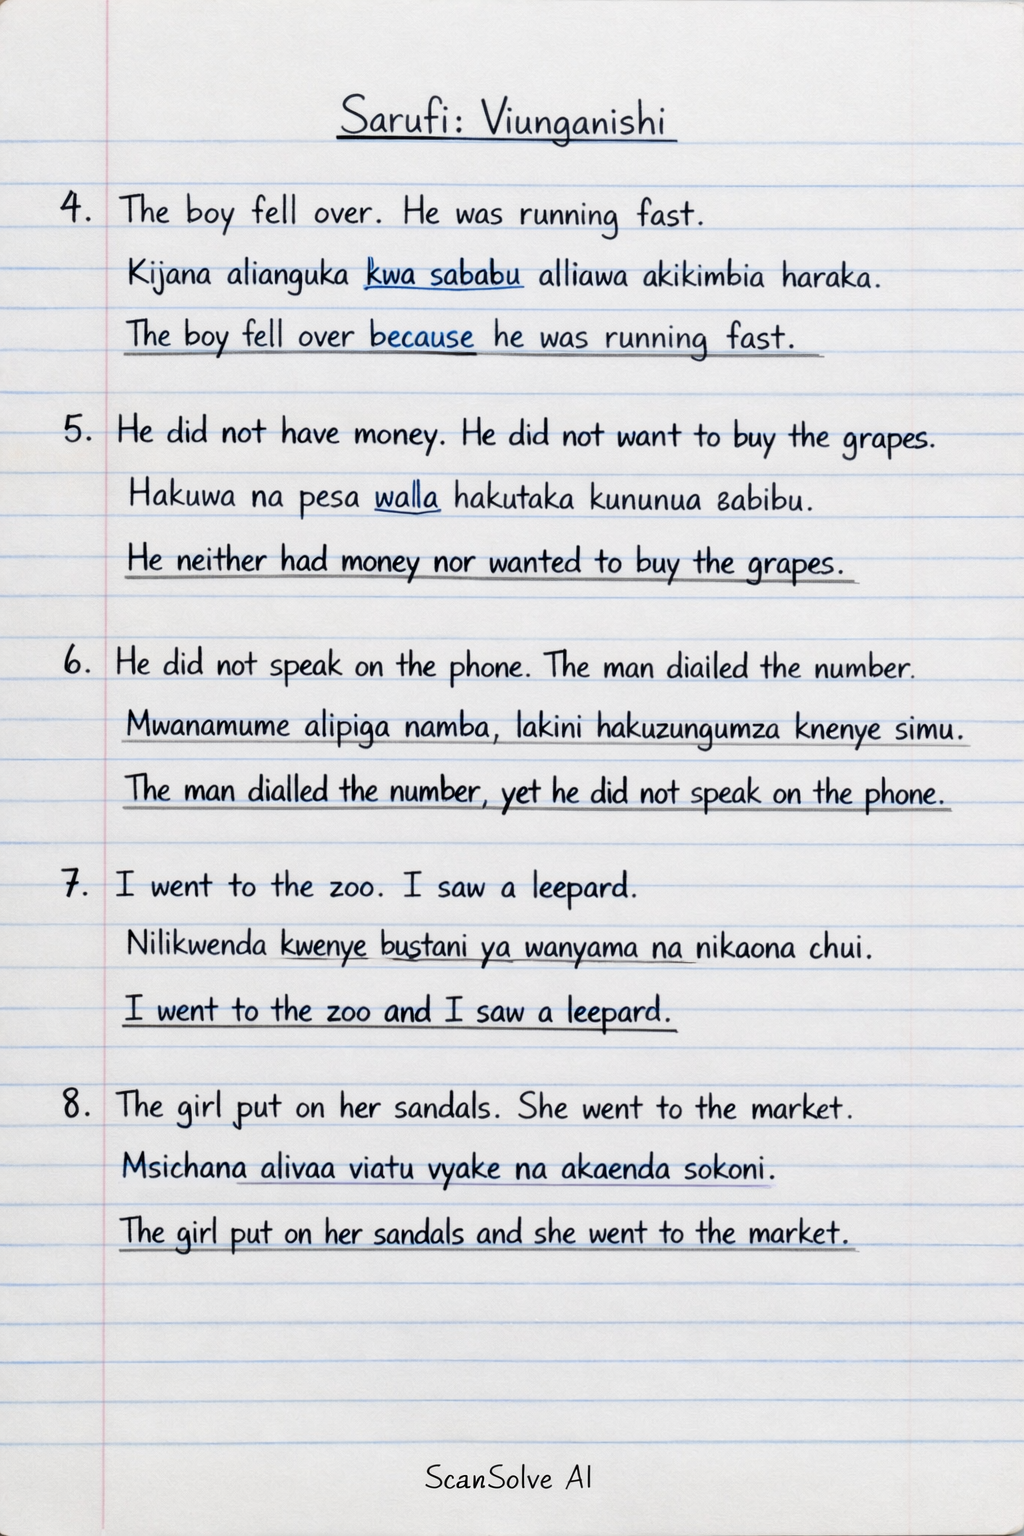 Sarufi: Viunganishi
4. The boy fell over. He was running fast.
Kijana alianguka kwa sababu alliawa akikimbia haraka.
The boy fell over because he was running fast.
5. He did not have money. He did not want to buy the grapes.
Hakuwa na pesa walla hakutaka kununua zabibu.
He neither had money nor wanted to buy the grapes.
6. He did not speak on the phone. The man diailed the number.
Mwanamume alipiga namba, lakini hakuzungumza knenye simu.
The man dialled the number, yet he did not speak on the phone.
7. I went to the zoo. I saw a leepard.
Nilikwenda kwenye bustani ya wanyama na nikaona chui.
I went to the zoo and I saw a leepard.
8. The girl put on her sandals. She went to the market.
Msichana alivaa viatu vyake na akaenda sokoni.
The girl put on her sandals and she went to the market.
ScanSolve AI